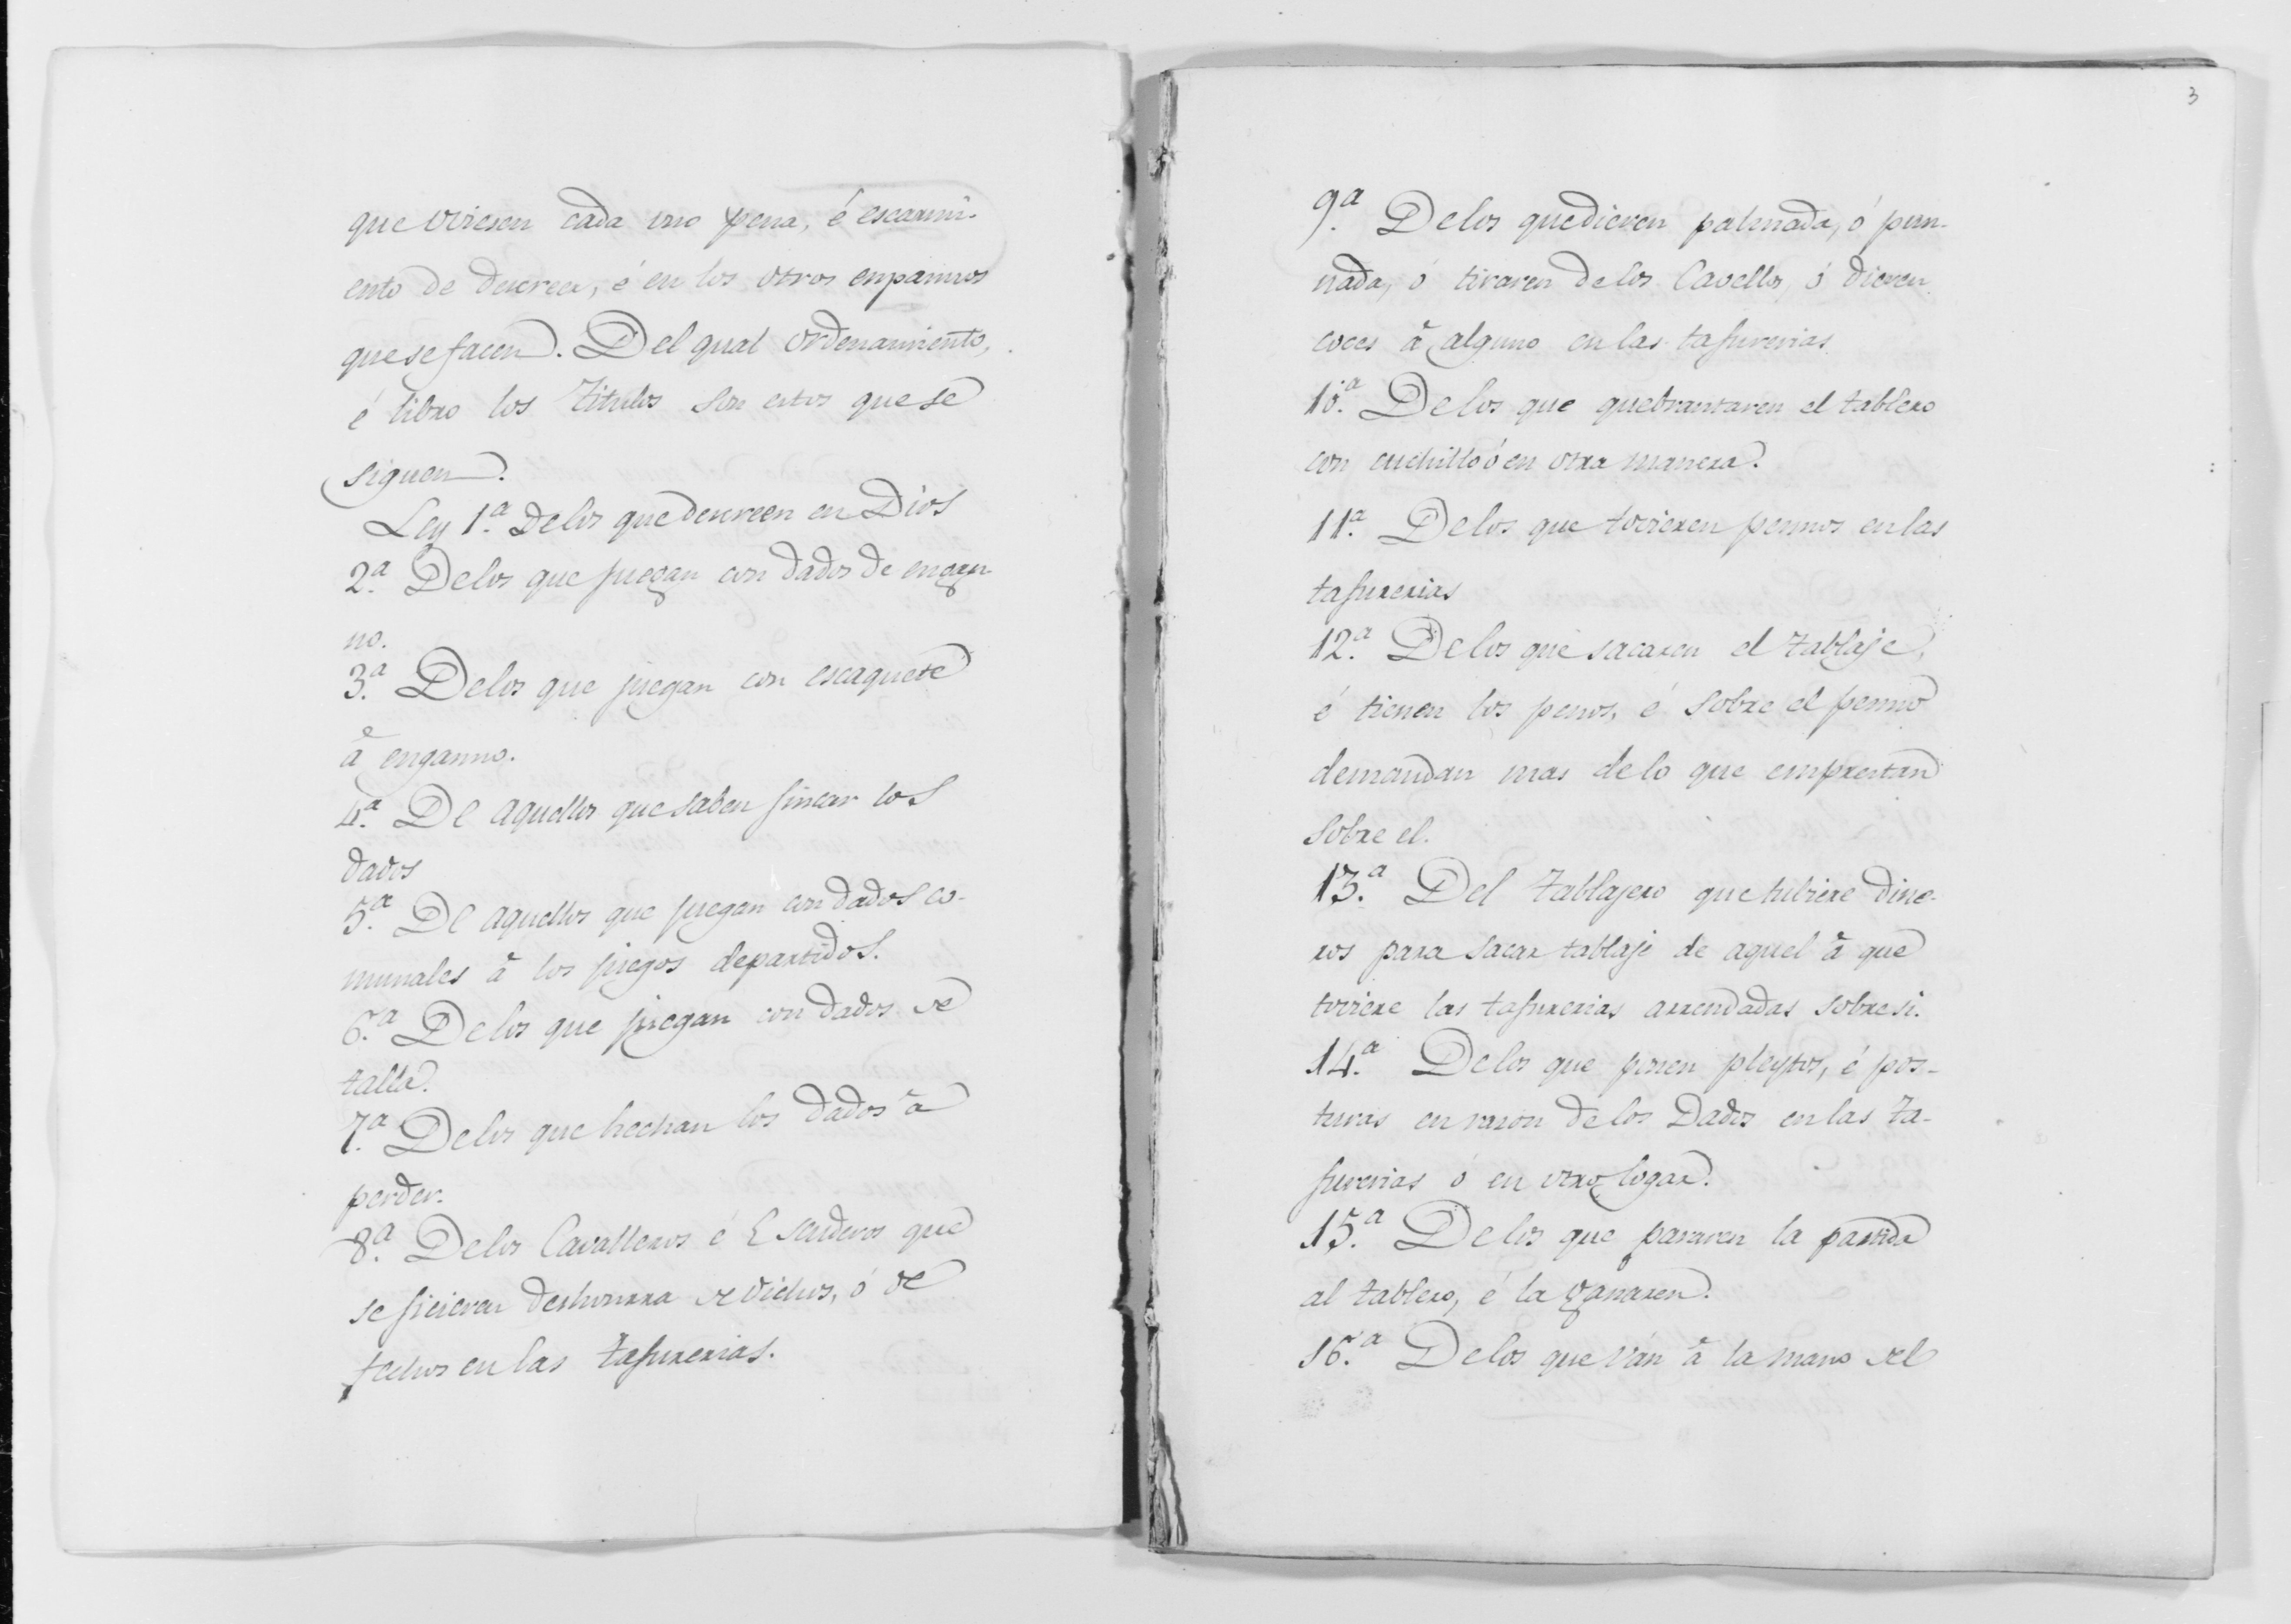 que oviesen cada uno pena, é escarmi-
ento de descreer, é en los otros enpannos
que se facen. Del qual ordenamiento,
é libro los titulos son estos que se
siguen.
Ley 1.ª De los que descreen en Dios
2.ª De los que juegan con dados de engan-
no.
3.ª De los que juegan con escaquete
à enganno.
4.ª De aquellos que saben fincar los
dados
5.ª De aquellos que juegan con dados co-
munales à los juegos departidos.
6.ª De los que juegan con dados de
talla.
7.ª De los que hechan los dados à
perder.
8.ª De los Cavalleros é Escuderos que
se ficieren deshonrra de dichos, ó de
fechos en las tafurerias.
3
9.ª De los que dieren palmada, ó pun-
nada, ó tiraren de los Cavellos, ó dieren
coces à alguno en las tafurerias
10.ª De los que quebrantaren el tablero
con cuchillo ó en otra manera.
11.ª De los que tovieren pennos en las
tafurerias
12.ª De los que sacaren el tablaje,
é tienen los penos, é sobre el penno
demandan mas de lo que emprestan
sobre el.
13.ª Del tablajero que tubiere dine-
ros para sacar tablaje de aquel à que
toviere las tafurerias arrendadas sobre si.
14.ª De los que ponen pleytos, é pos-
turas en razon de los Dados en las ta-
furerias ó en otro logar.
15.ª De los que pararen la partida
al tablero, é la ganaren.
16.ª De los que ván à la mano del